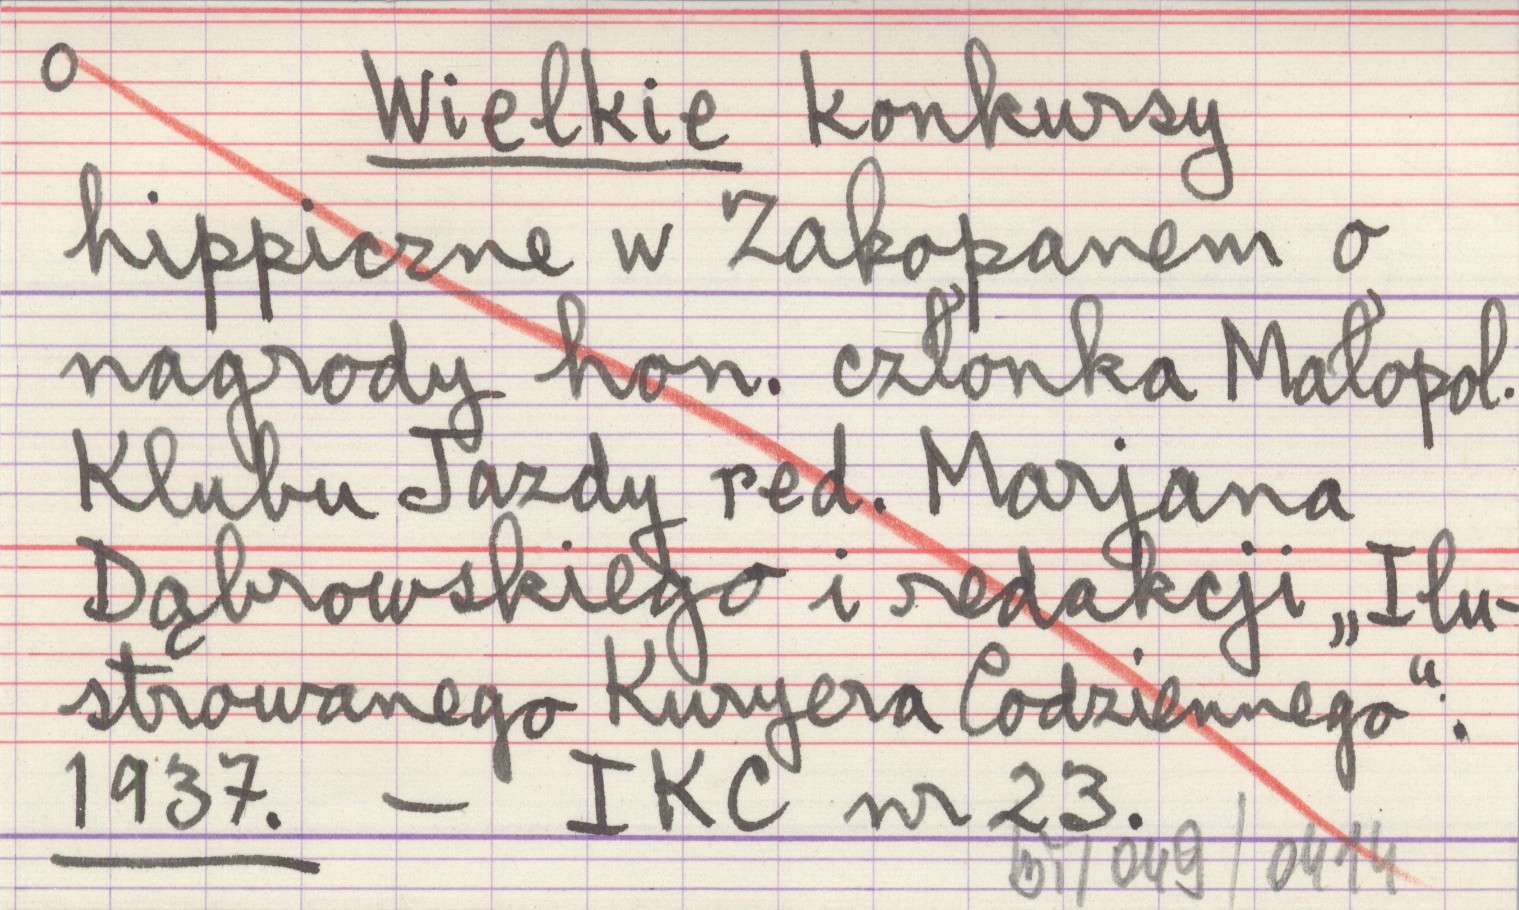 O Wielkie konkursy
hippiczne w Zakopanem o
nagrody hon. członka Małopol.
Klubu Jazdy red. Marjana
Dąbrowskiego i redakcji „Ilu-
strowanego Kuryera Codziennego“.
1937. — IKC nr 23.
/049/0414